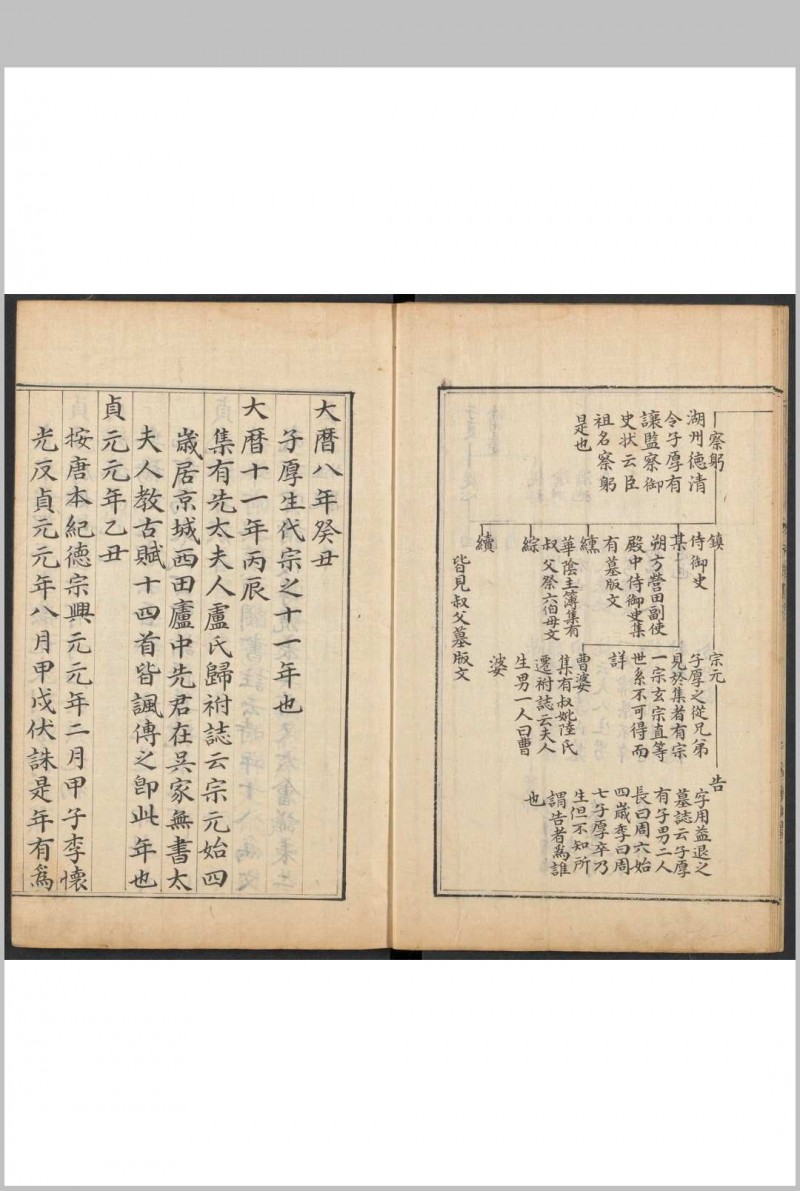 察躬
湖州德清
令子厚有
讓監察御
史状云臣
祖名察躬
是也
鎮
侍御史
某
朔方營田副使
殿中侍御史集
有墓版文
纁
華陰主簿集有
叔父祭六伯母文
綜
續
皆見叔父墓版文
宗元
子厚之從兄弟
見於集者有宗
一宗玄宗直等
世系不可得而
詳
曹婆
集有叔妣陸氏
遷祔誌云夫人
生男一人曰曹
婆
告
字用益退之
墓誌云子厚
有子男二人
長曰周六始
四歲季曰周
七子厚卒乃
生但不知所
謂告者為誰
也
大曆八年癸丑
子厚生代宗之十一年也
大曆十一年丙辰
集有先太夫人盧氏歸祔誌云宗元始四
歲居京城西田廬中先君在吳家無書太
夫人教古賦十四首皆諷傳之卽此年也
貞元元年乙丑
按唐本紀德宗興元元年二月甲子李懷
光反貞元元年八月甲戌伏誅是年有為